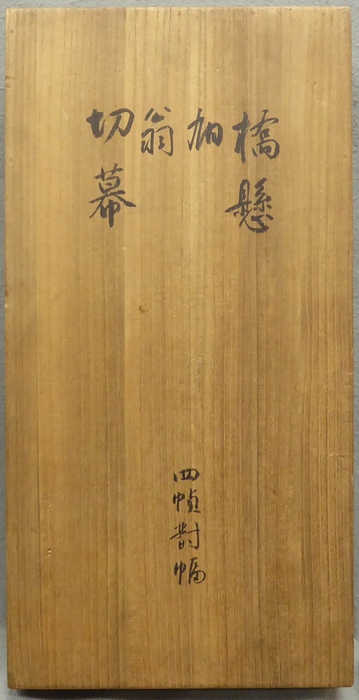 橋懸
加
翁
切幕
四幀對幅